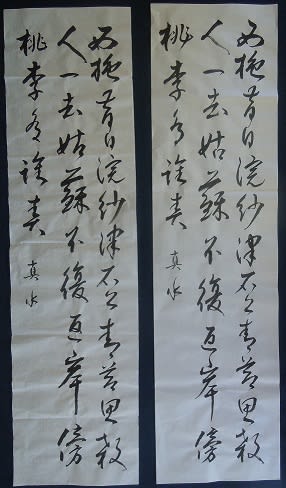 西施昔日浣紗津石上青苔思殺
人一去姑蘇不復返岸傍
桃李為誰春
真水
西施昔日浣紗津石上青苔思殺
人一去姑蘇不復返岸傍
桃李為誰春
真水